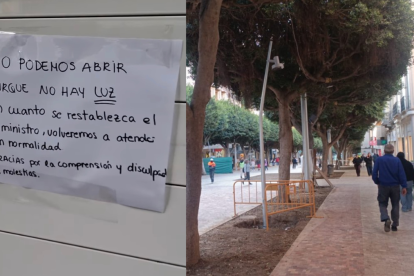 O PODEMOS ABRIR
RQUE NO HAY LUZ
n cuanto se restablezca el
ministro, volveremos a atender
n normalidad.
racias por la comprensión y disculpad
molestias.